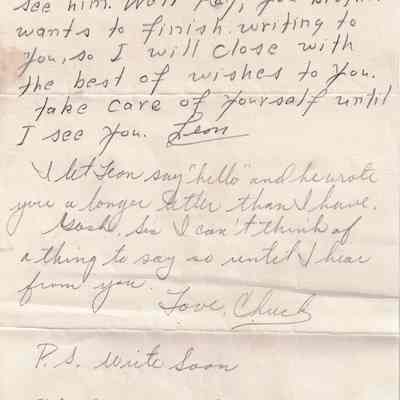 see him. Well Kay, your brother
wants to finish writing to
you, so I will close with
the best of wishes to you.
take care of yourself until
I see you. Leon
I let Leon say "hello" and he wrote
you a longer letter than I have.
Gosh, Sis I can't think of
a thing to say so until I hear
from you.
Love, Chuck
P.S. Write Soon